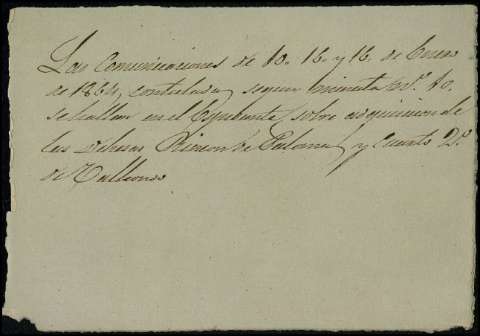 Las Comunicaciones de 10. 16. y 16. de Enero
de 1864, contestada, segun minuta nº. 10.
se hallan en el Espediente, sobre adquisicion de
las dehesas Rincon de y Cuarto 2º.
de